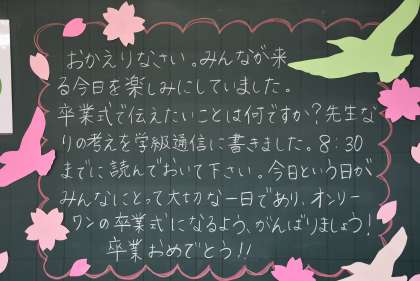 おかえりなさい。みんなが来
る今日を楽しみにしていました。
卒業式で伝えたいことは何ですか？先生な
りの考えを学級通信に書きました。8:30
までに読んでおいて下さい。今日という日が
みんなにとって大切な一日であり、オンリー
ワンの卒業式になるよう、がんばりましょう！
卒業おめでとう!!